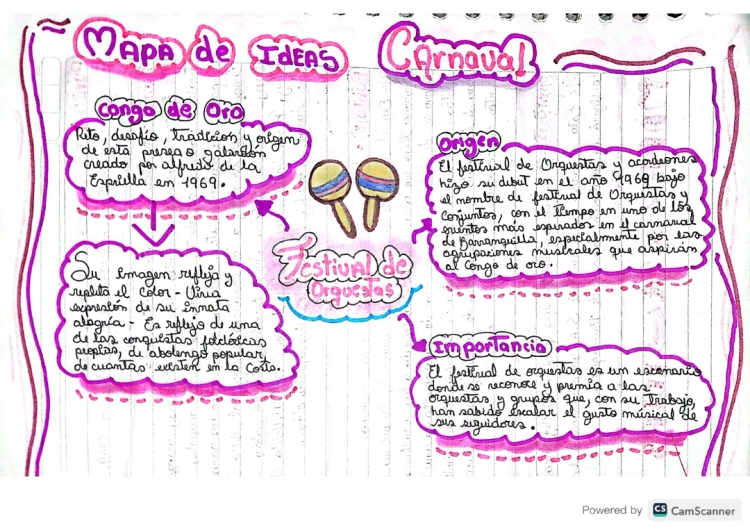 MAPA de IDEAS Carnaval
Congo de Oro
Rito, desafío, tradición y origen
de esta presea o galardón
creado por alfredo de la
Espriella en 1969.
Su imagen refleja y
replita el color - Viva
expresión de su innata
alegría - Es reflejo de una
de las conquistas folclóricas
propias, de abolengo popular,
de cuantas existen en la Costa.
Festival de
Orquestas
Origen
El festival de Orquestas y acordeones
hizo su debut en el año 1969 bajo
el nombre de festival de Orquestas y
Conjuntos, con el tiempo en uno de los
eventos más esperados en el carnaval
de Barranquilla, especialmente por las
agrupaciones musicales que aspiran
al Congo de oro.
Importancia
El festival de orquestas es un escenario
donde se reconoce y premia a las
orquestas y grupos que, con su Trabajo,
han sabido escalar el gusto músical de
sus seguidores.
Powered by CS CamScanner